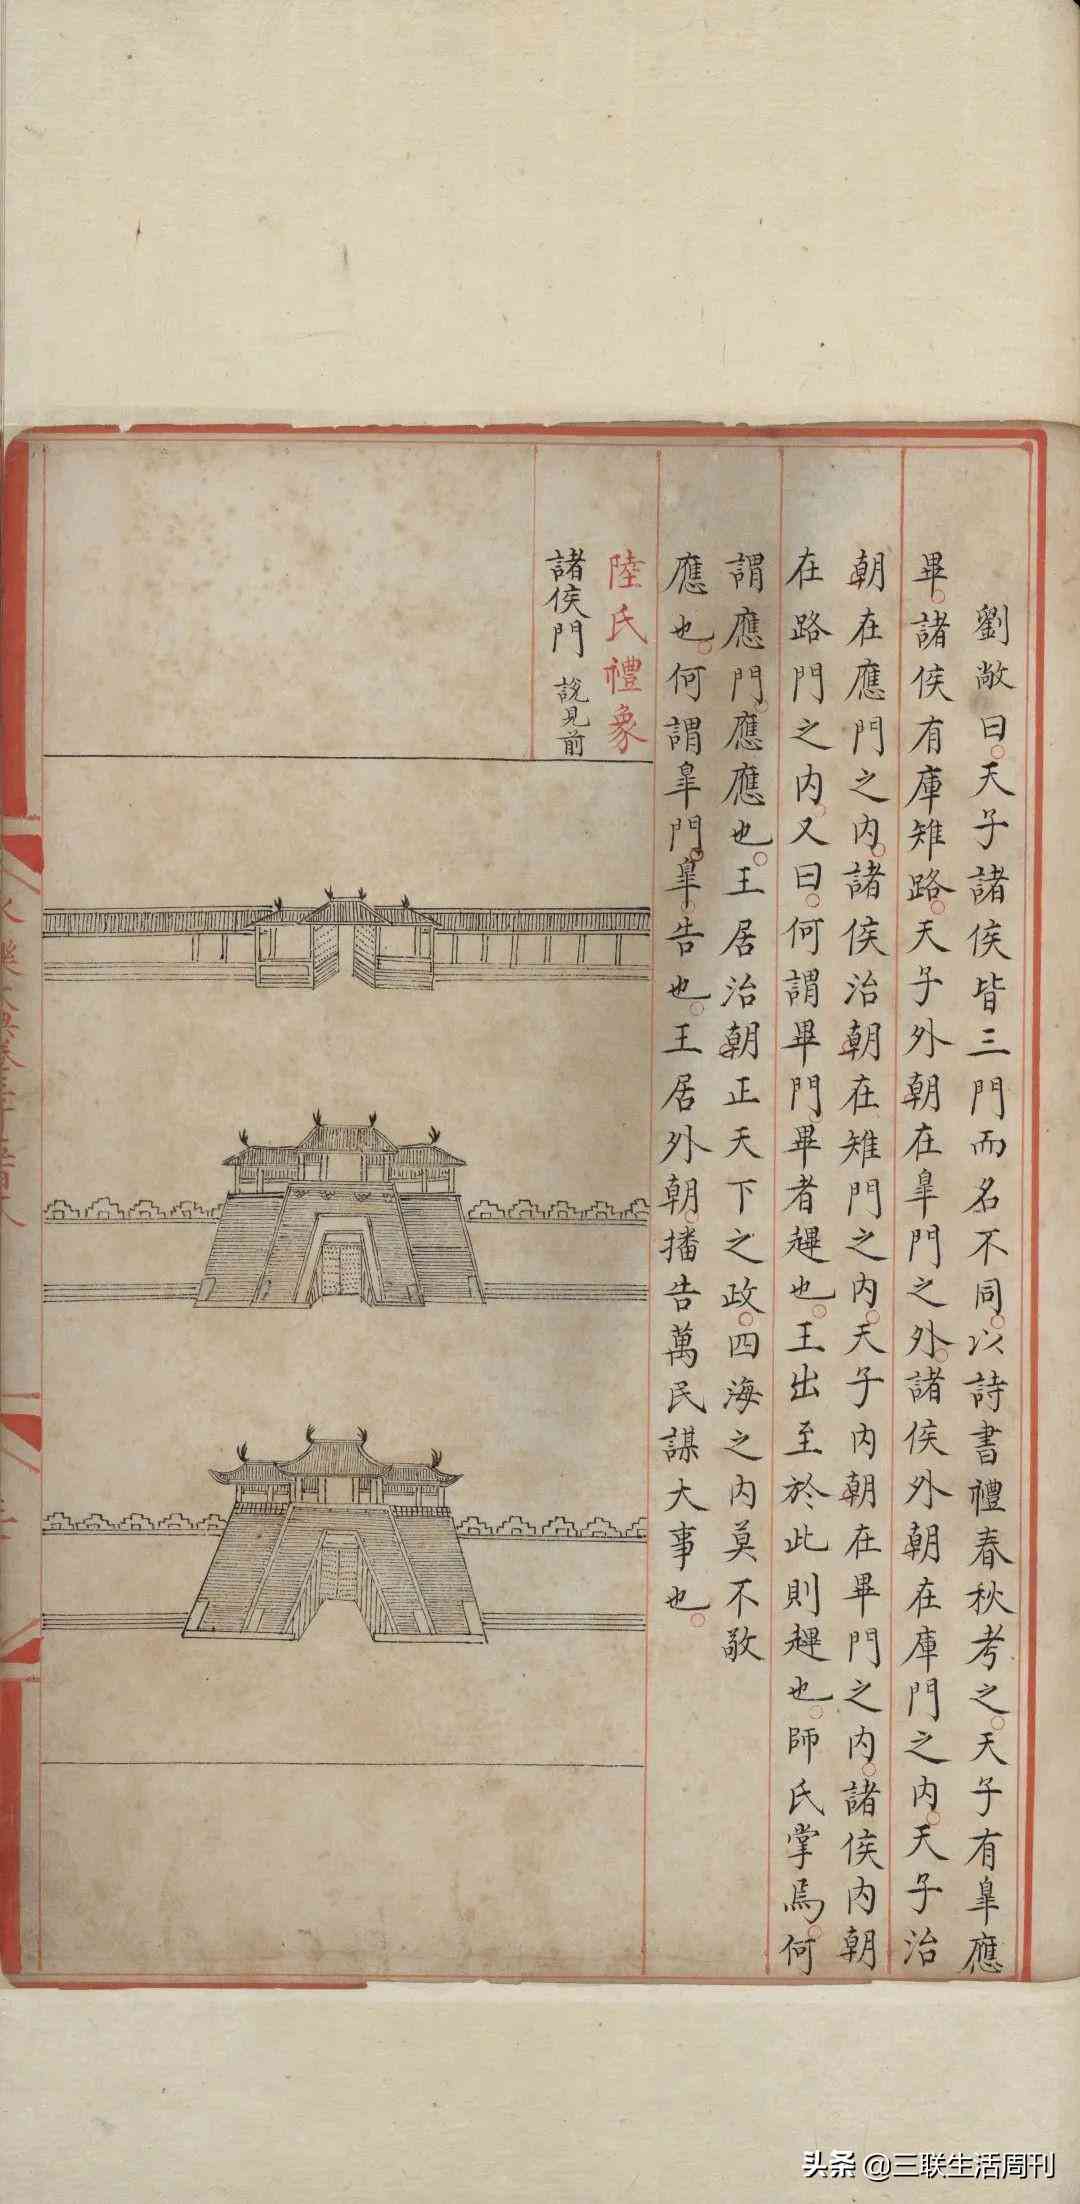 劉敞曰天子諸侯皆三門而名不同以詩書禮春秋考之天子有臯應
畢諸侯有庫雉路天子外朝在臯門之外諸侯外朝在庫門之内天子治
朝在應門之内諸侯治朝在雉門之内天子内朝在畢門之内諸侯内朝
在路門之内又曰何謂畢門畢者趩也王出至於此則趩也師氏掌焉何
謂應門應應也王居治朝正天下之政四海之内莫不敬
應也何謂臯門臯告也王居外朝播告萬民謀大事也
陸氏禮象
諸侯門 說見前
头条 @三联生活周刊